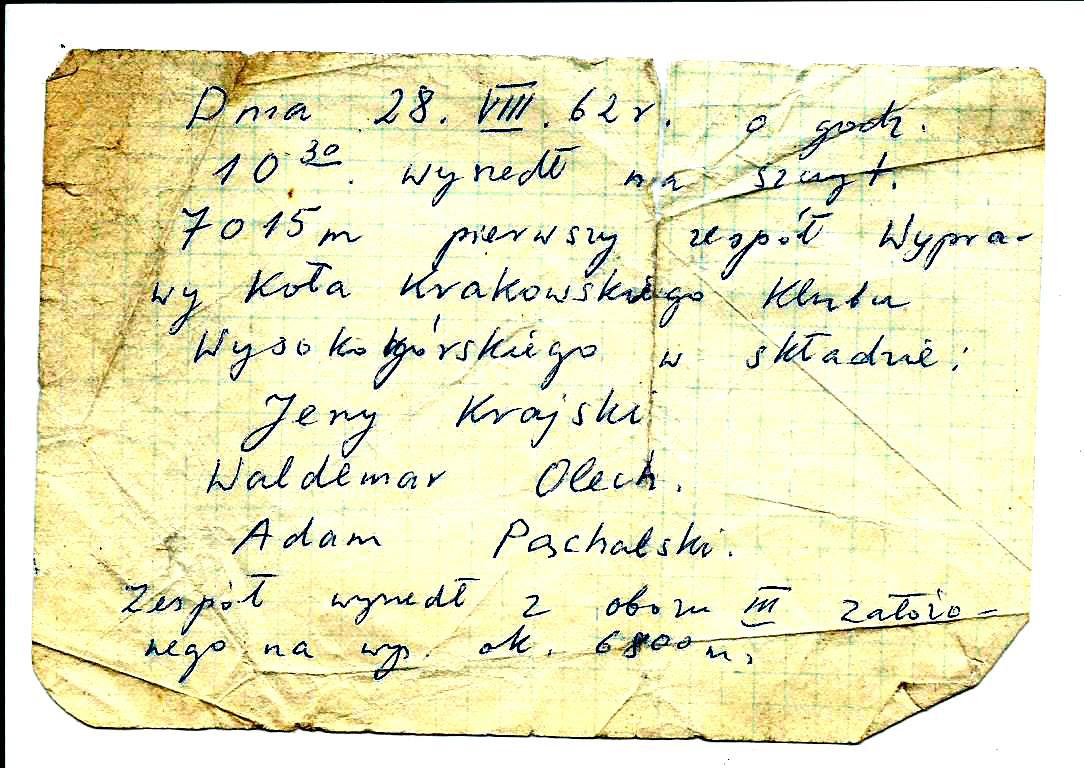 Dnia 28. VIII. 62 r. o godz.
10³⁰. wyszedł na szczyt.
7015 m pierwszy zespół Wypra-
wy Koła Krakowskiego Klubu
Wysokogórskiego w składzie:
Jerzy Krajski
Waldemar Olech.
Adam Paschalski.
Zespół wyszedł z obozu III założo-
nego na wys. ok. 6800 m.